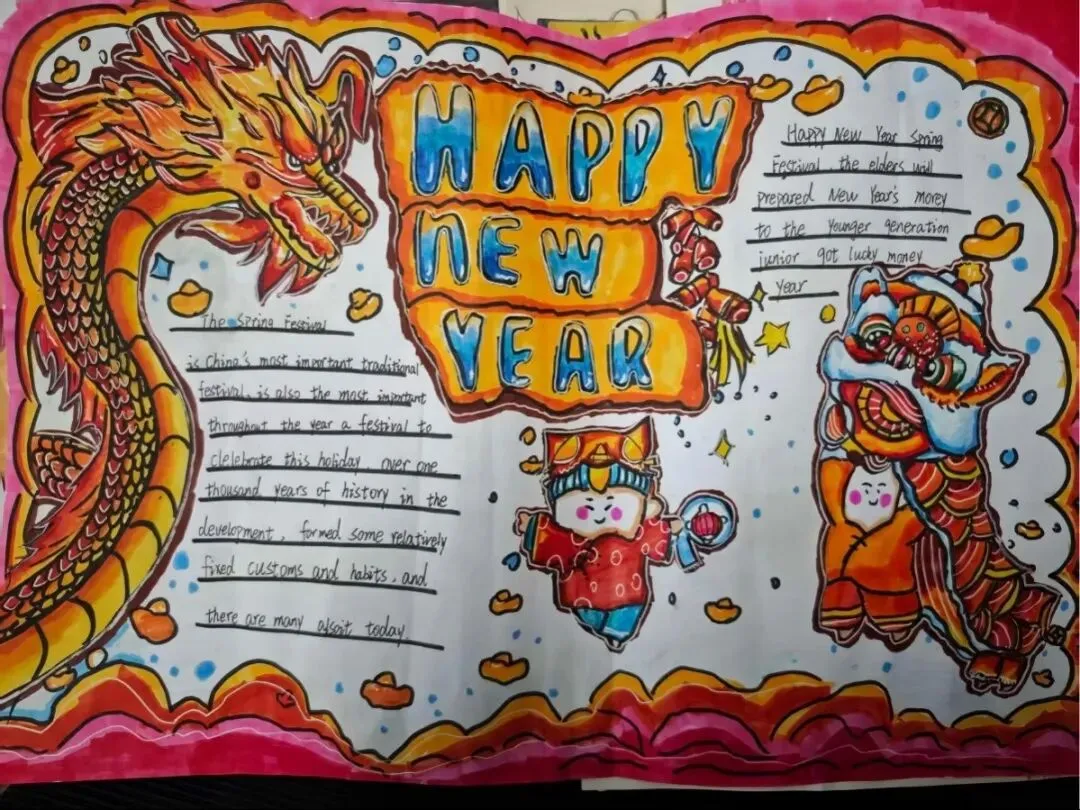 HAPPY
NEW
YEAR
The Spring Festival
is China's most important traditional
festival, is also the most important
throughout the year a festival to
clelebrate this holiday over one
thousand years of history in the
development, formed some relatively
fixed customs and habits, and
there are many today.
Happy New Year Spring
Festival the elders will
prepared New Year's money
to the Younger generation
junior got lucky money
Year